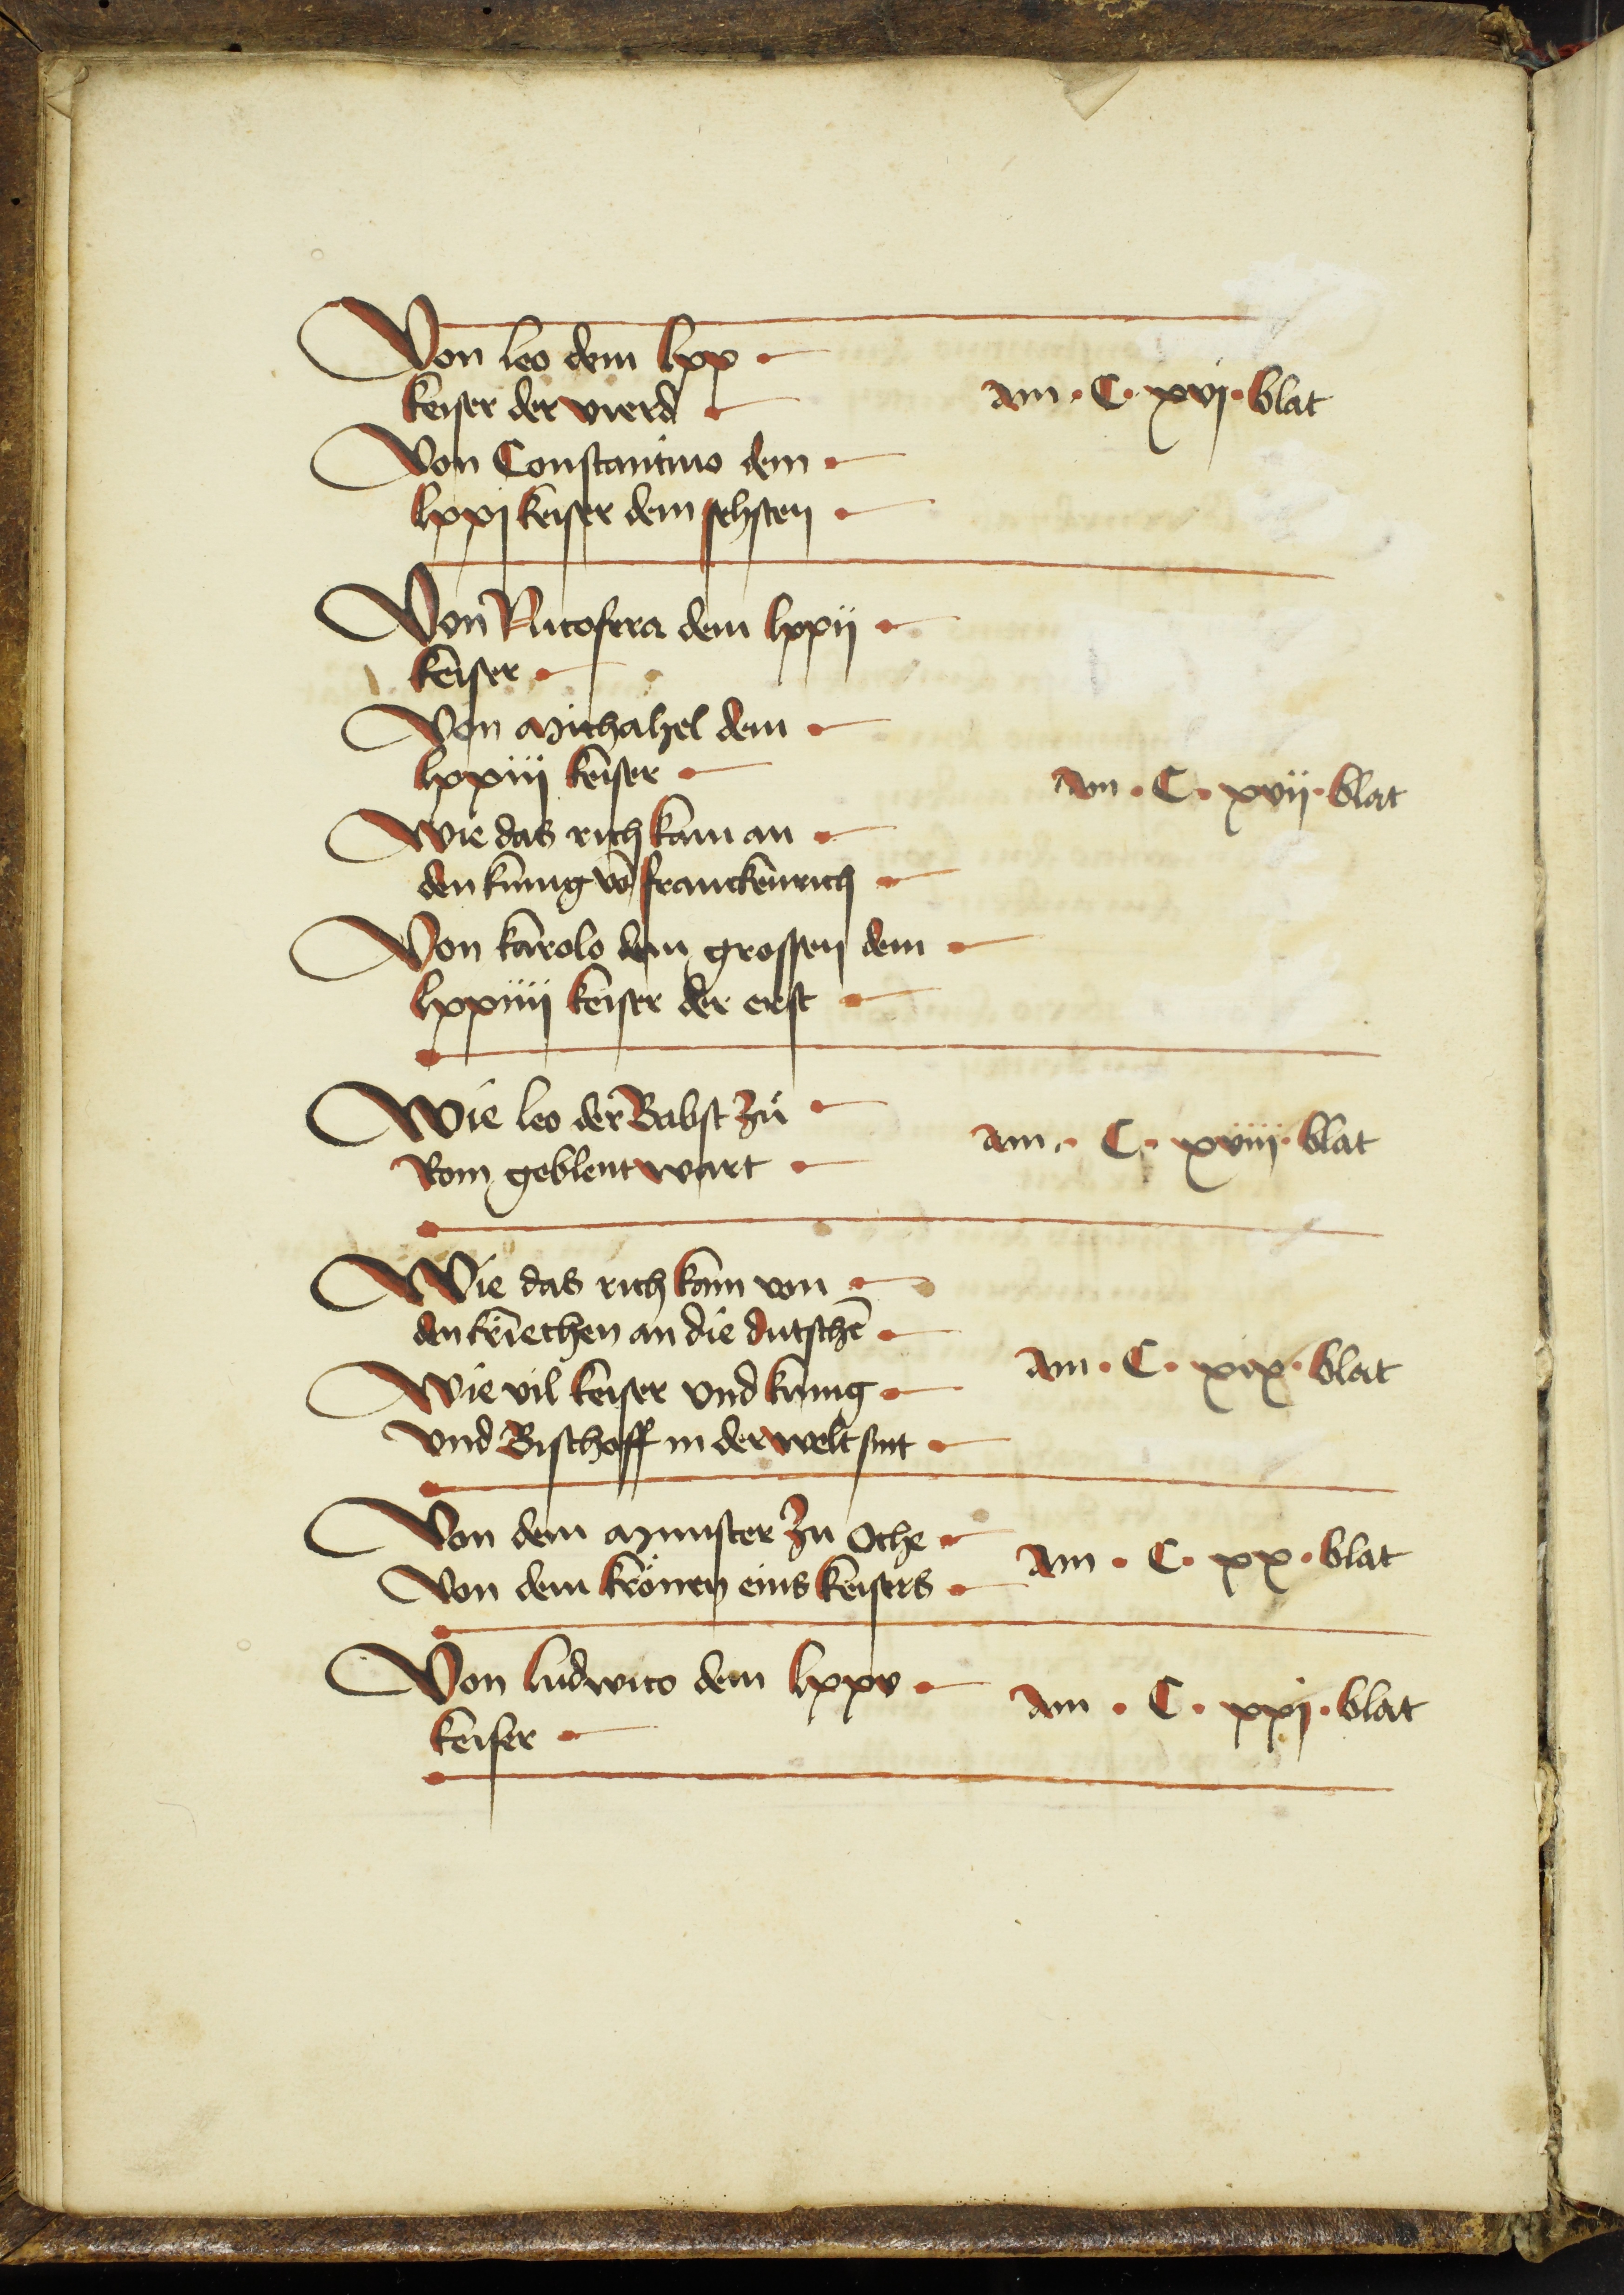 Von leo dem lxx
keiser der vierd
am · C · xvj · blat
Von Constantino dem
lxxj keiser dem sehsten
Von Nicofera dem lxxij
keiser
Von Michahel dem
lxxiij keiser
am · C · xvij · blat
Wie das rich kam an
den kunig vō franckenrich
Von karolo dem grossen dem
lxxiiij keiser der erst
Wie leo der Babst zů
Rom geblent wart
am · C · xviij · blat
Wie das rich kam von
den kriechen an die dutschē
am · C · xix · blat
Wie vil keiser vnd kunig
vnd Bischoff in der welt sint
Von dem Munster zu Oche
Von dem krönen eins keisers
am · C · xx · blat
Von ludwico dem lxxv
keiser
am · C · xxj · blat